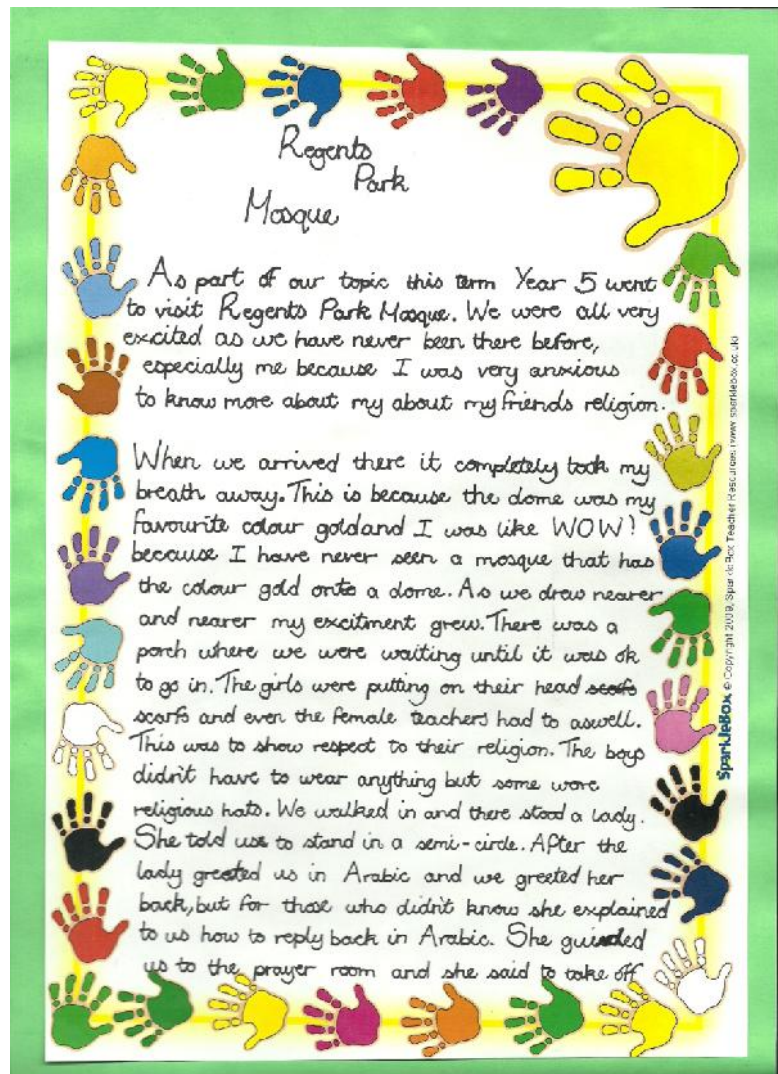 Regents
Park
Mosque
As part of our topic this term Year 5 went
to visit Regents Park Mosque. We were all very
excited as we have never been there before,
especially me because I was very anxious
to know more about my about my friends religion.
When we arrived there it completely took my
breath away. This is because the dome was my
favourite colour gold and I was like WOW!
because I have never seen a mosque that has
the colour gold onto a dome. As we drew nearer
and nearer my excitment grew. There was a
porch where we were waiting until it was ok
to go in. The girls were putting on their head scarfs
scarfs and even the female teachers had to aswell.
This was to show respect to their religion. The boys
didn't have to wear anything but some wore
religious hats. We walked in and there stood a lady.
She told use to stand in a semi-circle. After the
lady greeted us in Arabic and we greeted her
back, but for those who didn't know she explained
to us how to reply back in Arabic. She guided
us to the prayer room and she said to take off
SparkleBox © Copyright 2009, SparkleBox Teacher Resources (www.sparklebox.co.uk)